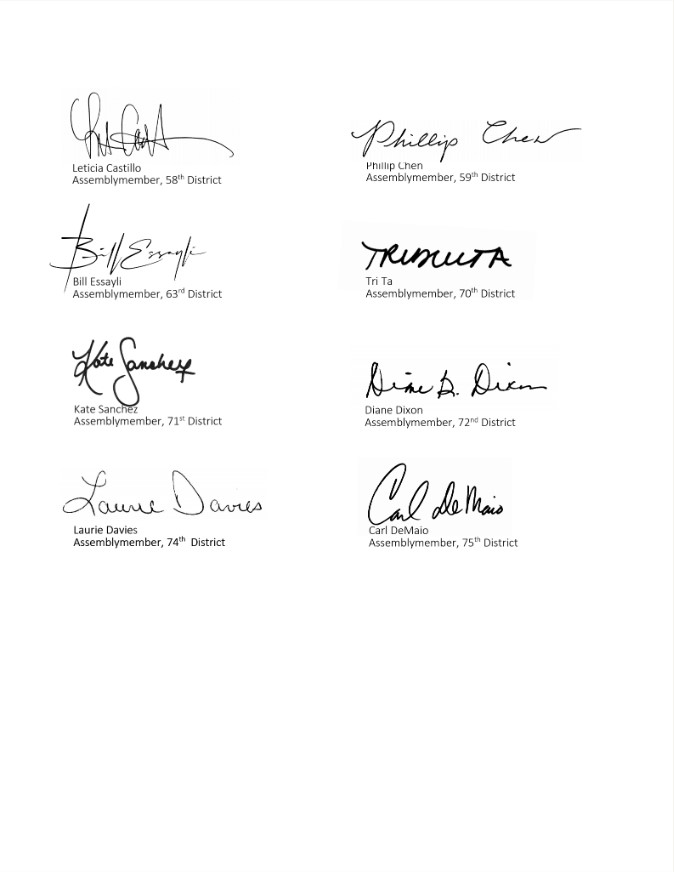 Leticia Castillo
Assemblymember, 58th District
Phillip Chen
Phillip Chen
Assemblymember, 59th District
Bill Essayli
Bill Essayli
Assemblymember, 63rd District
Tri Ta
Assemblymember, 70th District
Kate Sanchez
Kate Sanchez
Assemblymember, 71st District
Diane B. Dixon
Diane Dixon
Assemblymember, 72nd District
Laurie Davies
Laurie Davies
Assemblymember, 74th District
Carl DeMaio
Carl DeMaio
Assemblymember, 75th District